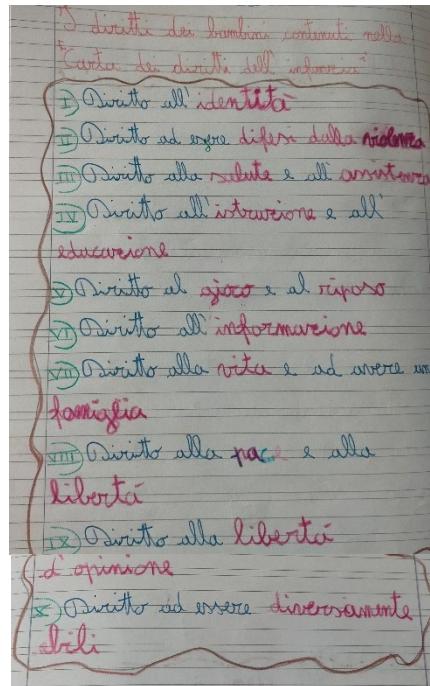 "I diritti dei bambini contenuti nella
"Carta dei diritti dell'infanzia"
I) Diritto all'identità
II) Diritto ad essere difesi dalla violenza
III) Diritto alla salute e all'assistenza
IV) Diritto all'istruzione e all'
educazione
V) Diritto al gioco e al riposo
VI) Diritto all'informazione
VII) Diritto alla vita e ad avere un
famiglia
VIII) Diritto alla pace e alla
libertà
IX) Diritto alla libertà
d'opinione
X) Diritto ad essere diversamente
abili